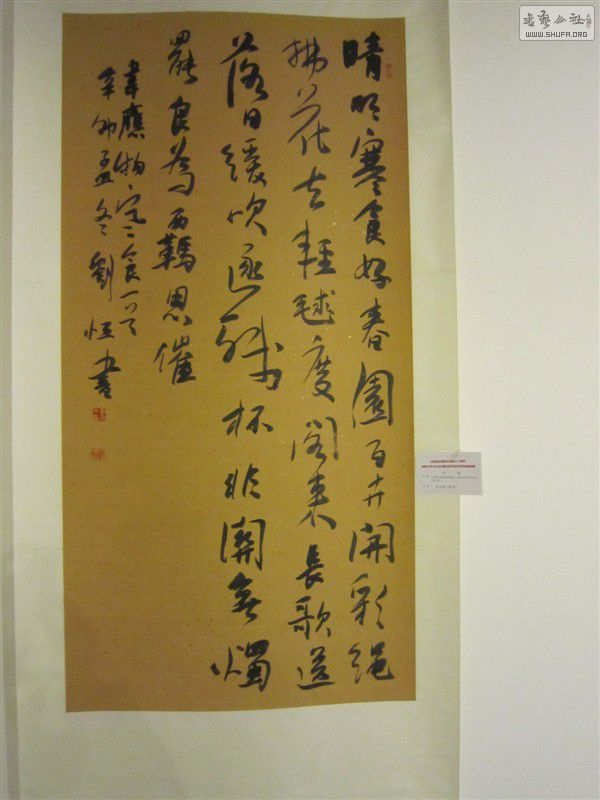 晴明寒食好春園百卉開彩繩
拂花去輕毬度閣來長歌送
落日緩吹逐殘杯非關無燭
罷良為羈思催
韋應物寒食一首
辛卯孟冬劉恒書
書藝公社
WWW.SHUFA.ORG